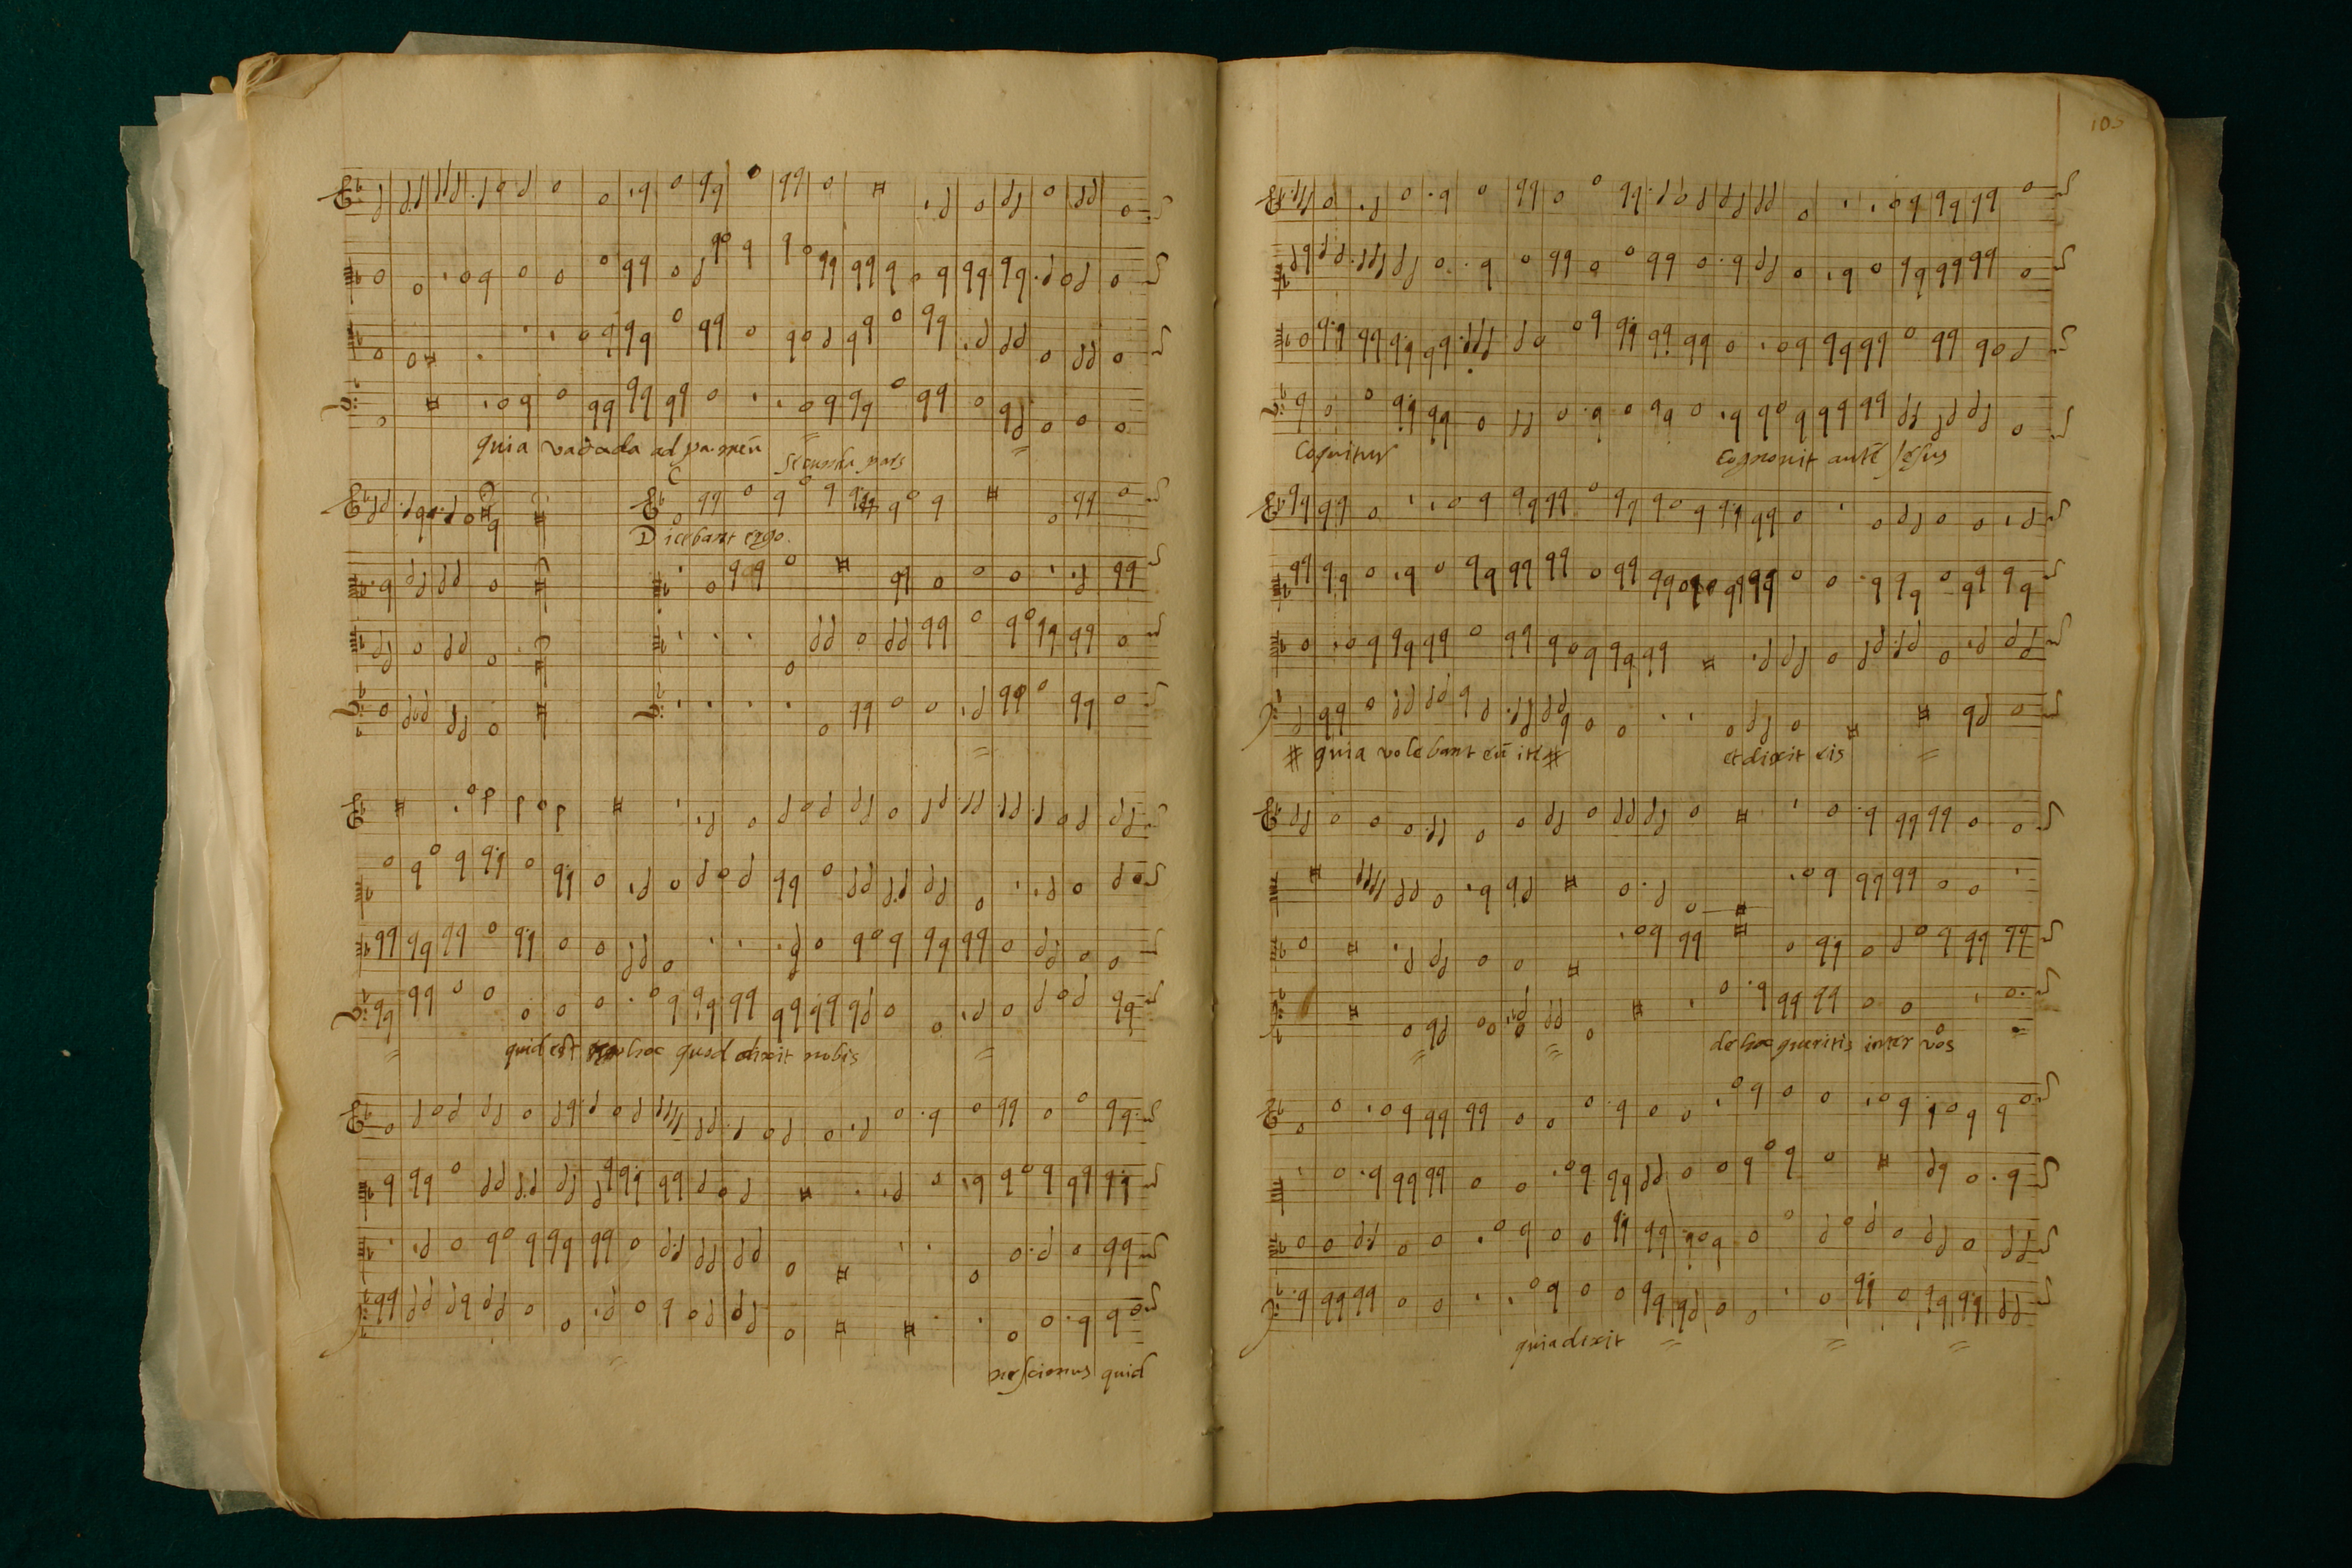 quia vado ad pa. meū
Secunda pars
Dicebant ergo.
quid est hoc quod dixit nobis
nescimus quid
105
loquitur
cognouit autē Jesus
quia volebant eū
et dixit eis
de hoc quæritis inter vos
quia dixit